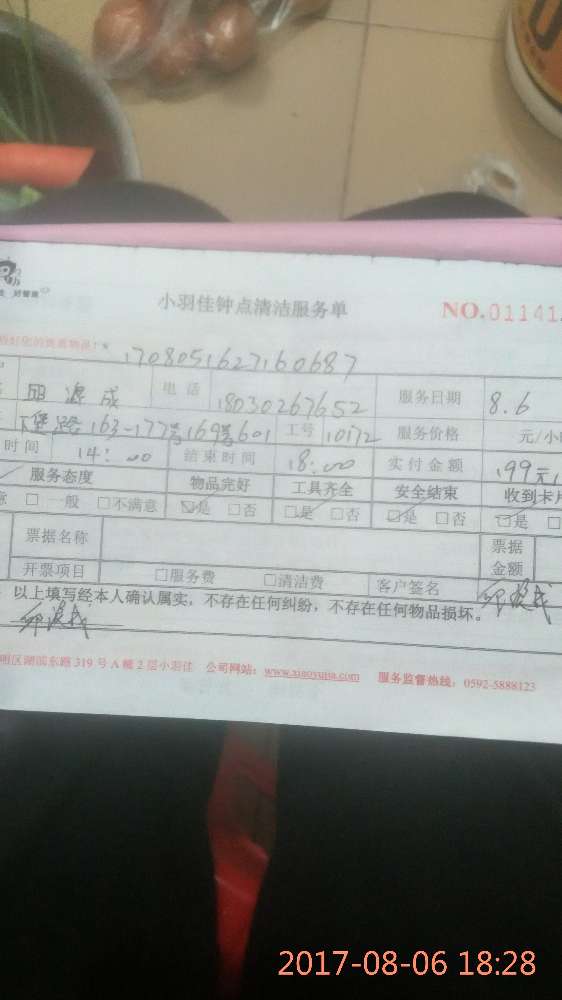 小羽佳钟点清洁服务单 NO.01141
好管家
1708051627160687
邱源成 电话 18030267652 服务日期 8.6
路163-177号169号601 工号 10172 服务价格 元/小
时间 14:00 结束时间 18:00 实付金额 199元
服务态度 物品完好 工具齐全 安全结束 收到卡片
意 □ 一般 □不满意 ☑是 □否 ☑是 □否 ☑是 □否 ☑是 □
票据名称 票据金额
开票项目 □服务费 □清洁费 客户签名 邱源成
以上填写经本人确认属实，不存在任何纠纷，不存在任何物品损坏。
邱源成
明区湖滨东路319号A幢2层小羽佳 公司网站：www.xiaoyujia.com 服务监督热线：0592-5888123
2017-08-06 18:28